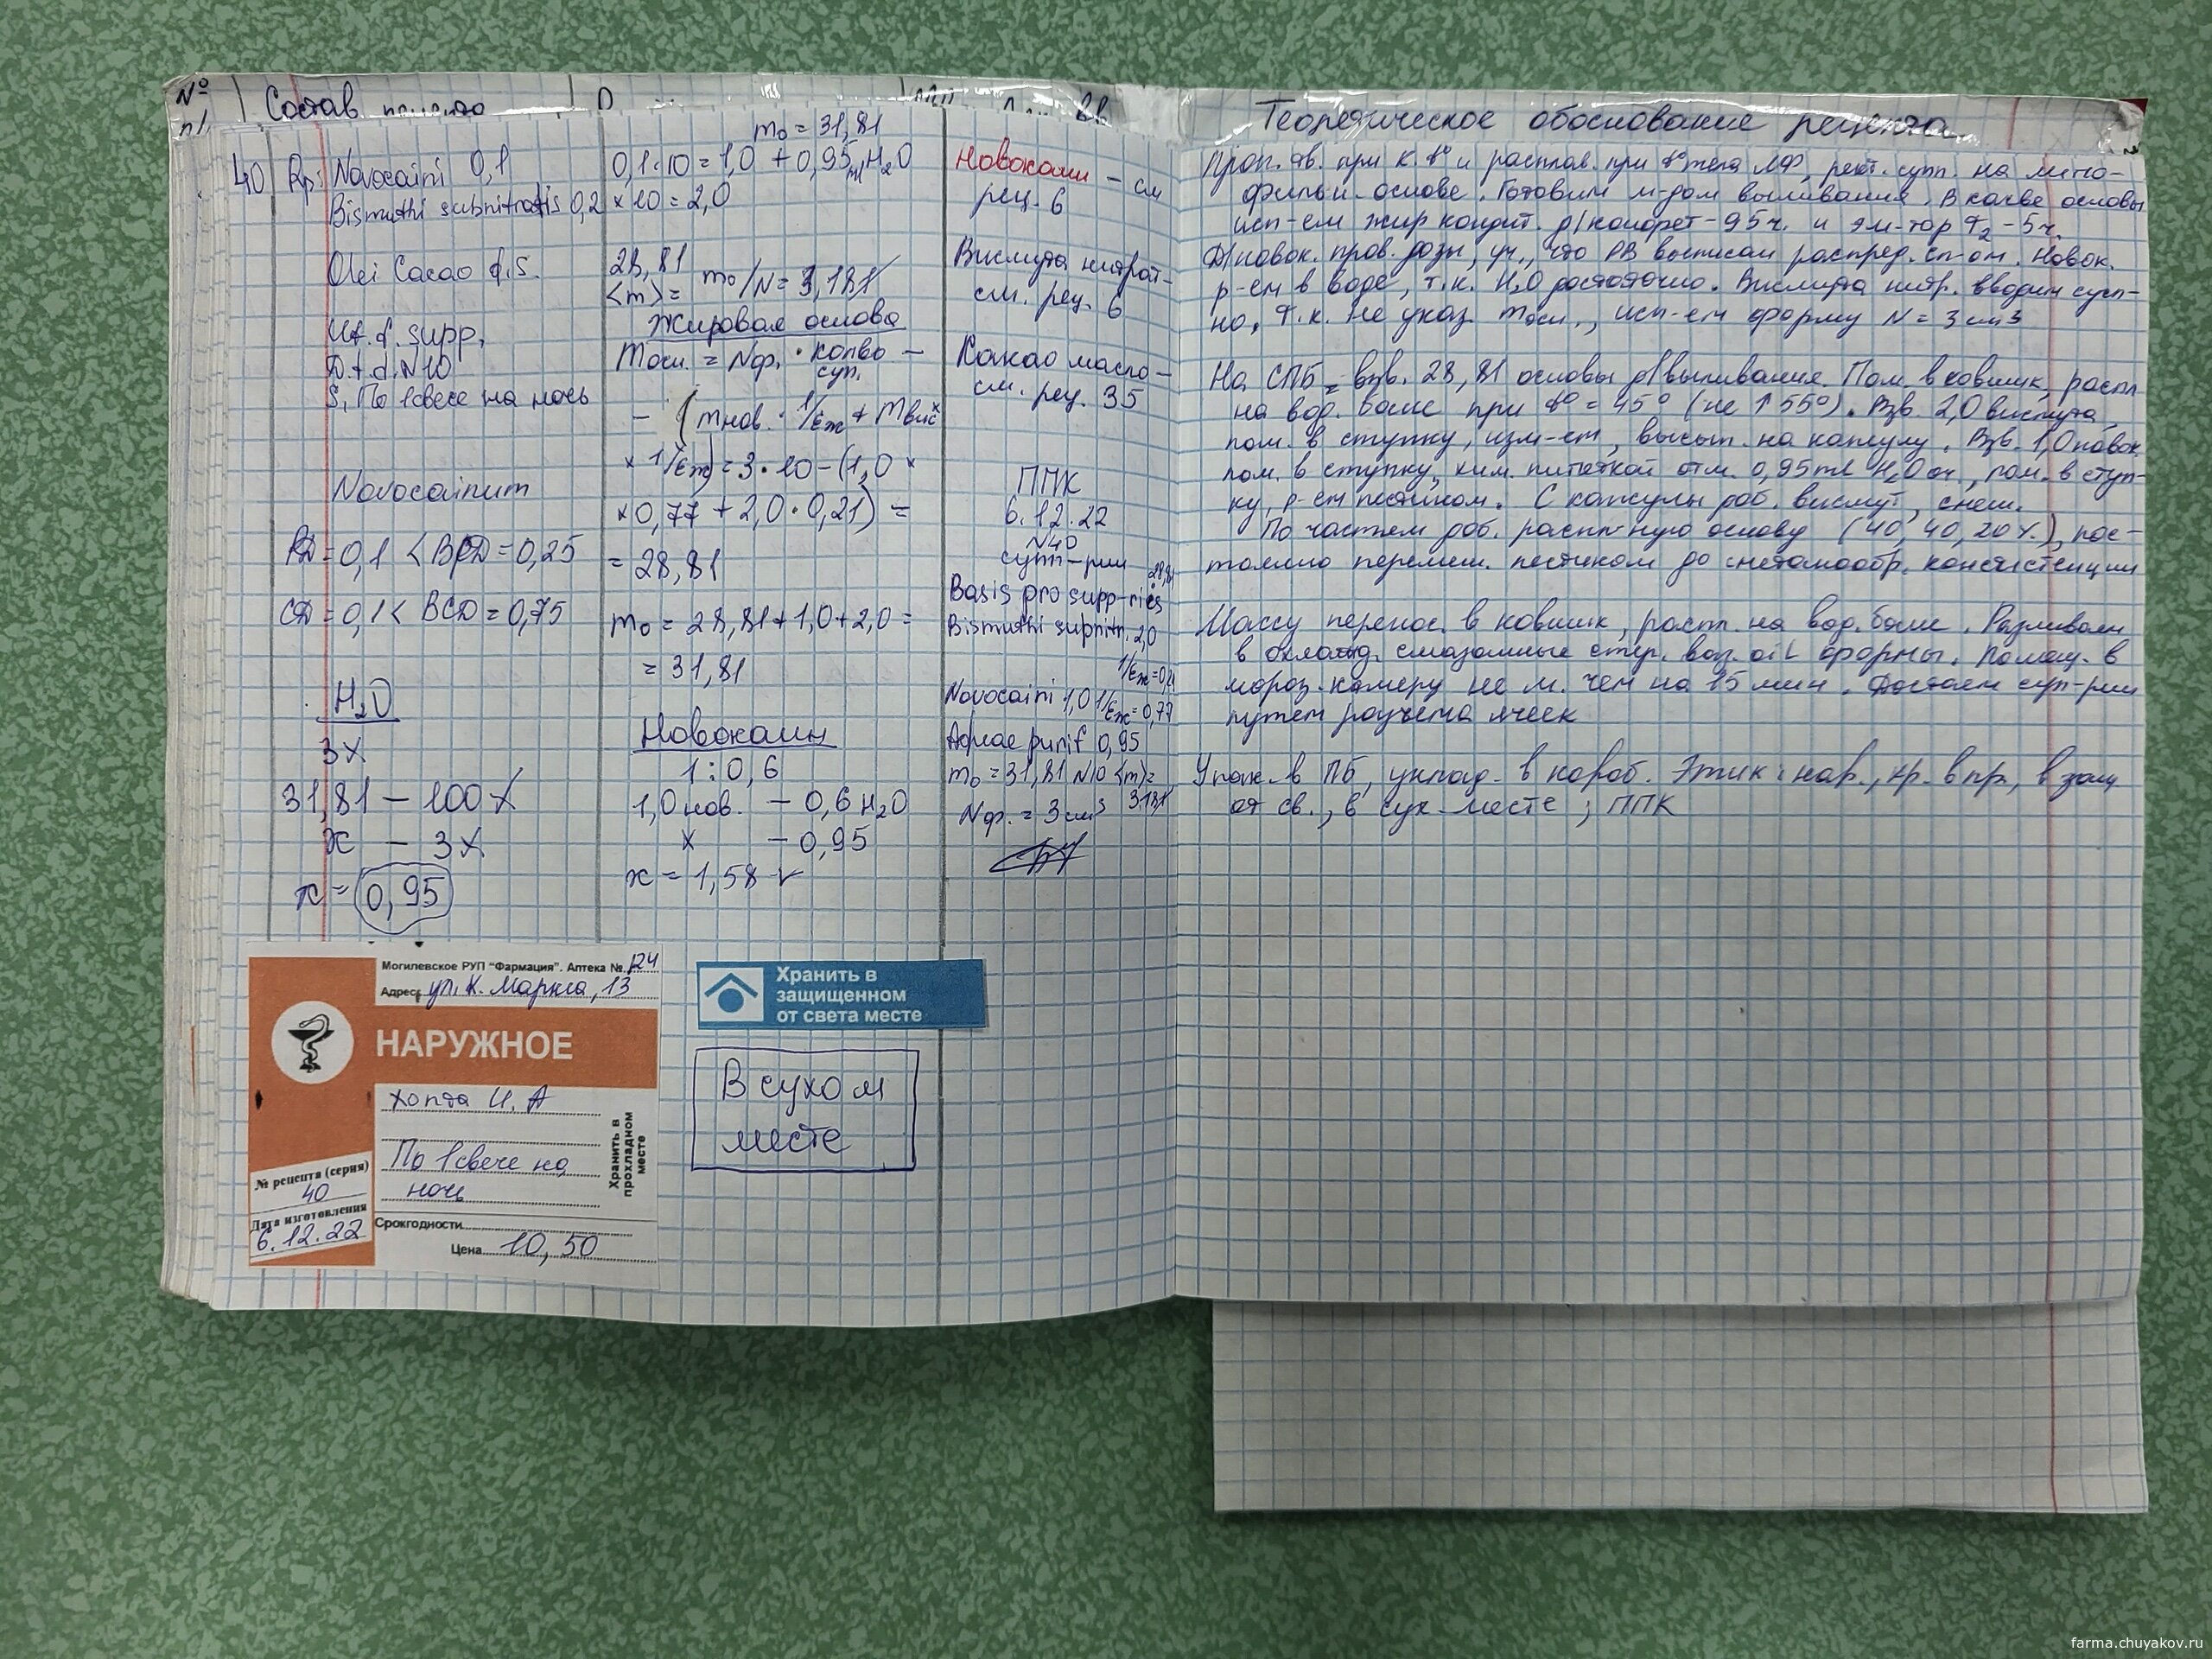 №
п/
Состав рецепта
Теоретическое обоснование рецепта
40
Rp: Novocaini 0,1
Bismuthi subnitratis 0,2
Olei Cacao q.s.
Ut. f. supp.
D.t.d. N10
S. По 1 свече на ночь
Novocainum
РД = 0,1 < ВРД = 0,25
СД = 0,1 < ВСД = 0,75
H2O
3%
31,81 – 100%
x – 3%
x = 0,95
m0 = 31,81
0,1·10 = 1,0 + 0,95 ml H2O
× 10 = 2,0
28,81
<m> = m0/N = 3,181
Жировая основа
mосн. = Nф. · кол-во суп. –
– (mнов. · 1/Eж + mвис ×
× 1/Eж) = 3·10 – (1,0 ×
× 0,77 + 2,0 · 0,21) =
= 28,81
m0 = 28,81 + 1,0 + 2,0 =
= 31,81
Новокаин
1 : 0,6
1,0 нов. – 0,6 H2O
x – 0,95
x = 1,58 v
Новокаин – см
рец. 6
Висмута нитрат –
см. рец. 6
Какао масло –
см. рец. 35
ППК
6.12.22
N40
супп-рии
28,81
Basis pro supp-ries
Bismuthi subnitr. 2,0
1/Eж = 0,21
Novocaini 1,0 1/Eж = 0,77
Aquae purif 0,95
m0 = 31,81 N10 <m> =
3,181
Nф. = 3 см3
Проп. тв. при к. t° и расплав. при t° тела ЛФ, рект. супп. на липо-
фильн. основе. Готовим м-дом выливания. В кач-ве основы
исп-ем жир кондит. д/конфет – 95ч. и эм-тор Т2 – 5ч.
Д/новок. пров. дозы, уч., что РВ выписан распред. сп-ом. Новок.
р-ем в воде, т.к. H2O достаточно. Висмута нитр. вводим сусп-
но. Т.к. не указ. mосн., исп-ем форму N = 3 см3
На СПБ взв. 28,81 основы д/выливания. Пом. в ковшик, распл
на вод. бане при t° = 45° (не ↑ 55°). Взв. 2,0 висмута,
пом. в ступку, изм-ем, высып. на капсулу. Взв. 1,0 новок
пом. в ступку, хим. пипеткой отм. 0,95 ml H2O оч., пом. в ступ-
ку, р-ем пестиком. С капсулы доб. висмут, смеш.
По частям доб. распл-ную основу (40, 40, 20%), пос-
тоянно перемеш. пестиком до сметанообр. консистенции
Массу перенос. в ковшик, распл. на вод. бане. Разливаем
в охлажд. смазанные стер. ваз. oil формы. Помещ. в
мороз. камеру не м. чем на 15 мин. Достаем суп-рии
путем разъема ячеек
Упак. в ПБ, уклад. в короб. Этик: нар., хр. в пр, в защ.
от св., в сух. месте; ППК
Могилевское РУП "Фармация". Аптека № 124
Адрес ул. К. Маркса, 13
НАРУЖНОЕ
Хопта И. А
По 1 свече на
ночь
Хранить в прохладном месте
№ рецепта (серия)
40
Дата изготовления
6.12.22
Срок годности
Цена 10,50
Хранить в
защищенном
от света месте
В сухом
месте
farma.chuyakov.ru